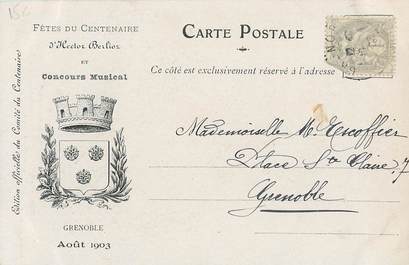 FÊTES DU CENTENAIRE
d'Hector Berlioz
ET
Concours Musical
Edition officielle du Comité du Centenaire
GRENOBLE
Août 1903
CARTE POSTALE
Ce côté est exclusivement réservé à l'adresse
Mademoiselle M. Escoffier
Place Ste Claire, 7
Grenoble